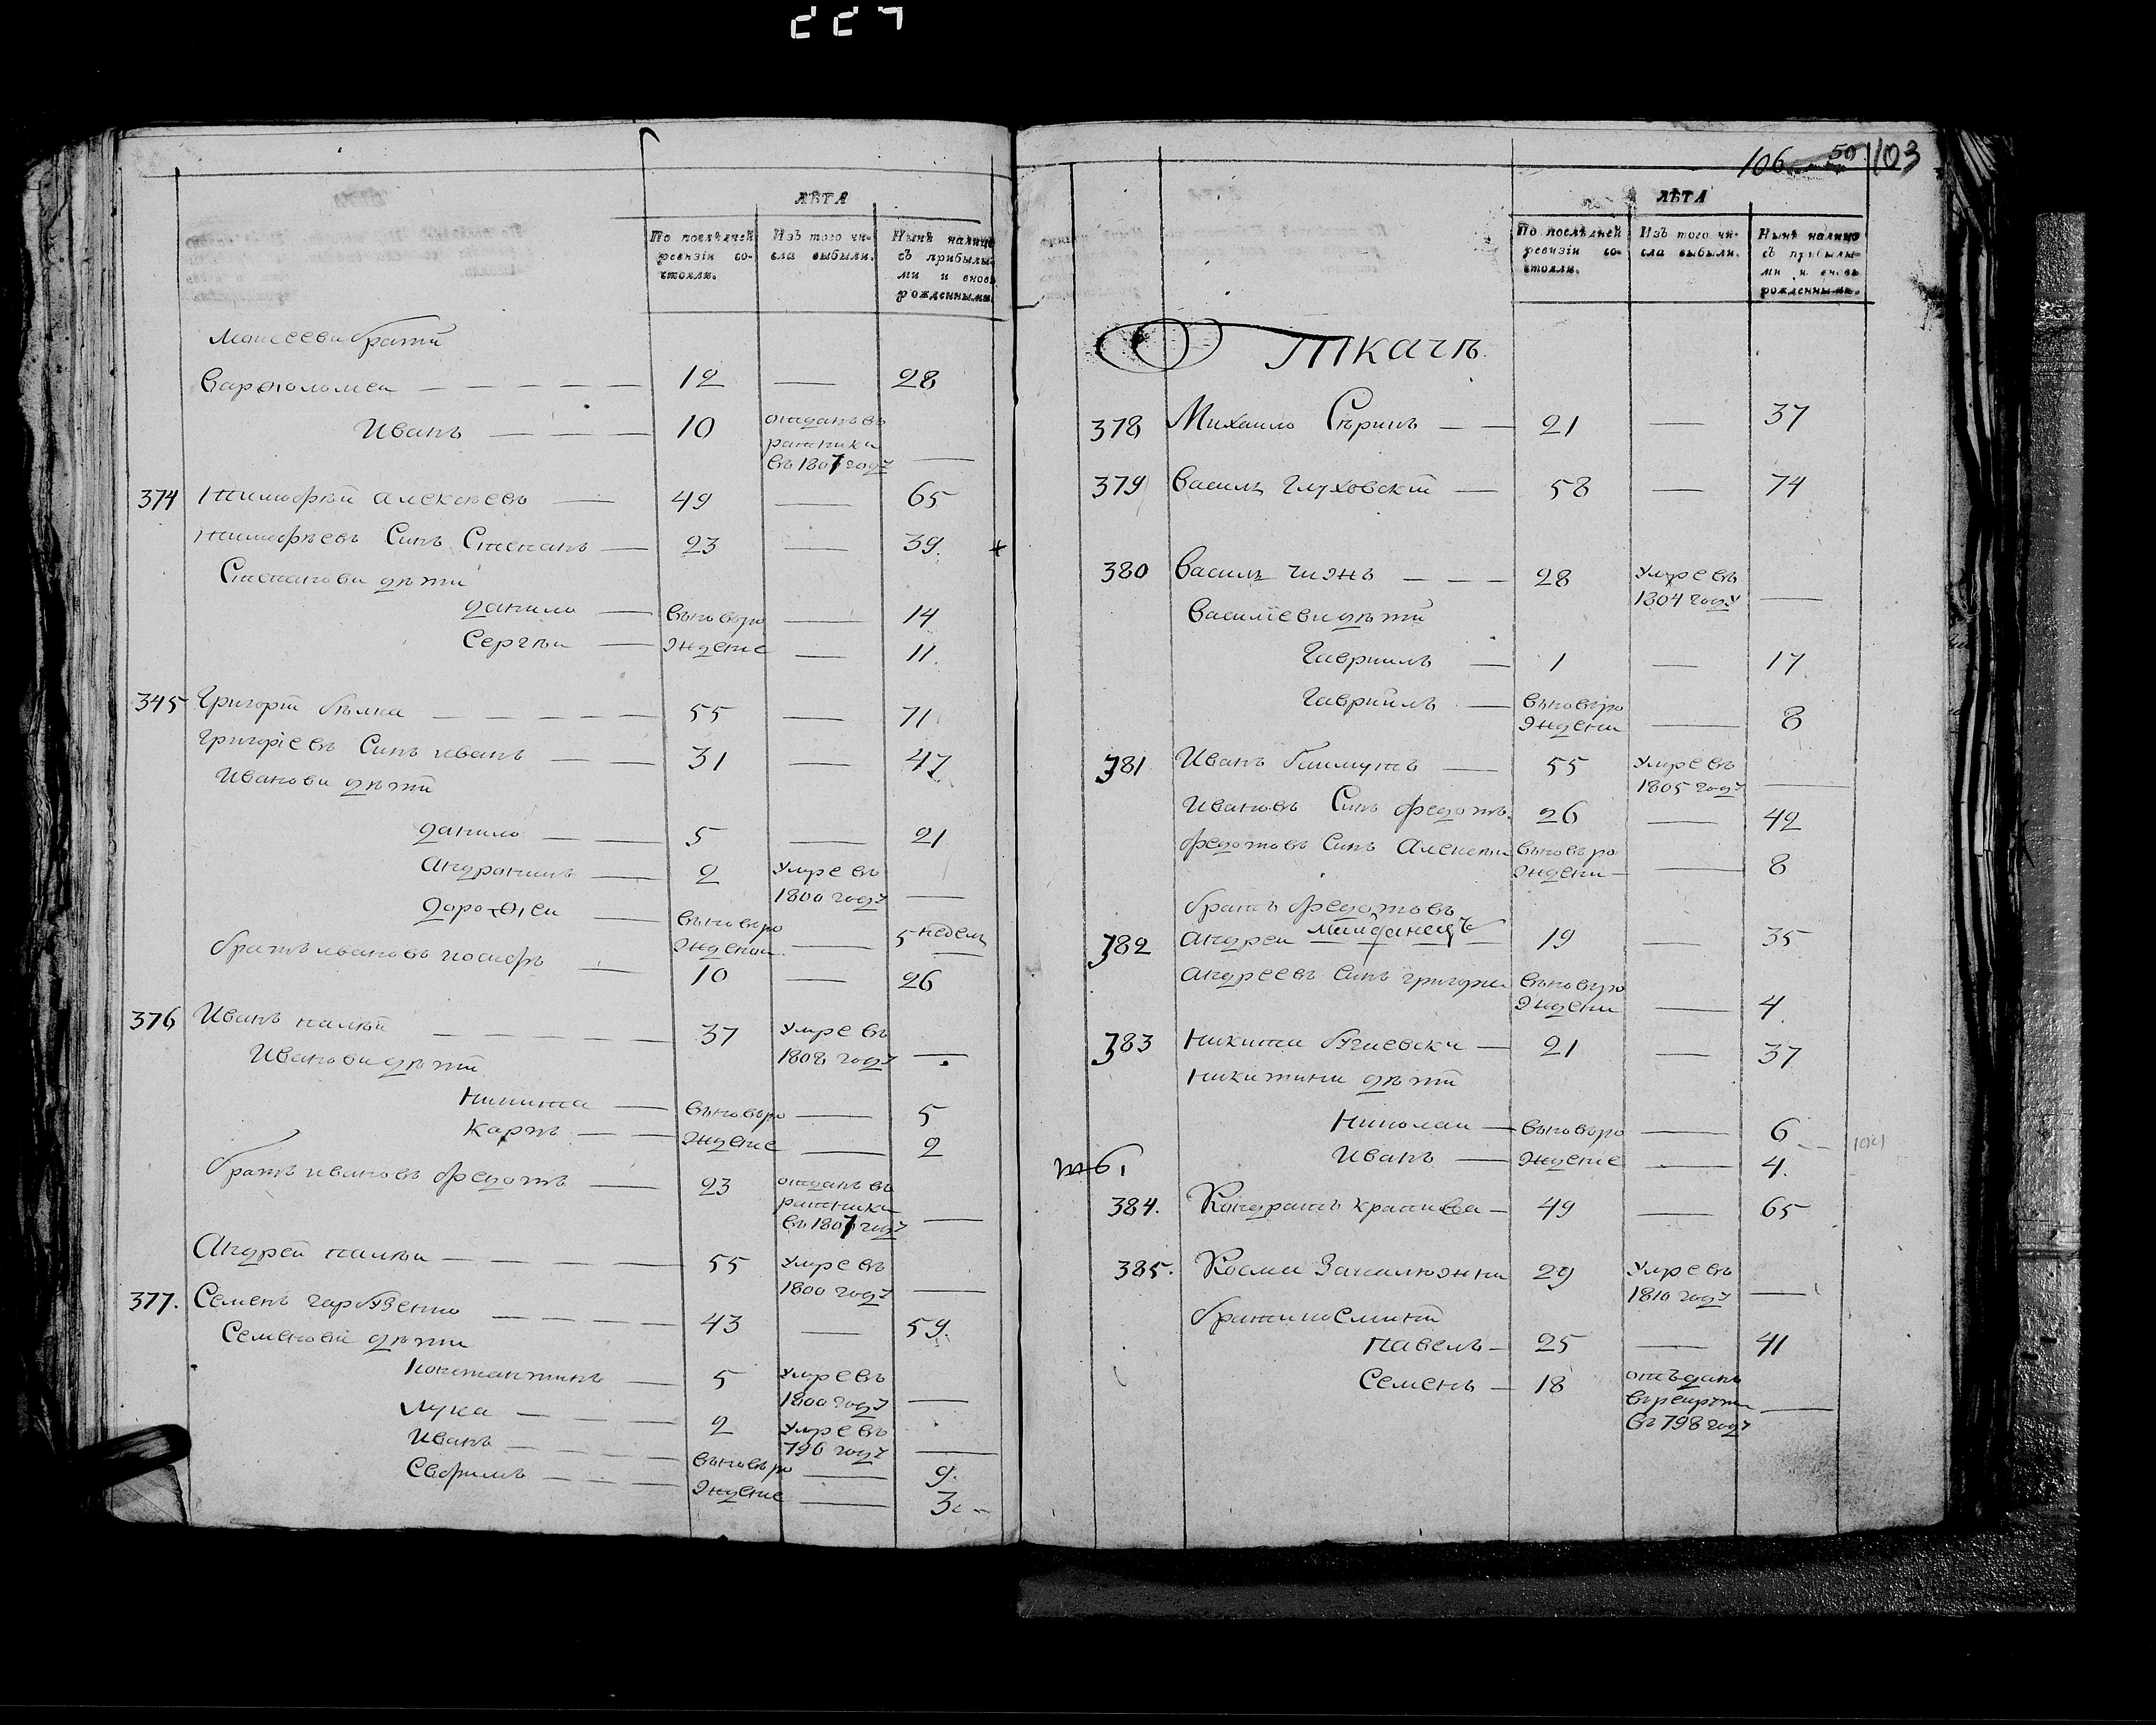 227
ЛѢТА
По послѣдней ревизіи состояли.
Изъ того числа выбыли.
Нынѣ налицо съ прибылыми и вновь рожденными.
Моисееви брати
Варфоломеа — 12 — 28
Иванъ — 10 отданъ въ ратники въ 1807 году —
374 Тимофѣй Алексѣевъ — 49 — 65
Тимофѣевъ Синъ Степанъ — 23 — 39.
Степанови дѣти
Данило — вновъро — 14
Сергѣи — ждение — 11.
345 Григорій Бѣлка — 55 — 71
Григоріевъ Синъ иванъ — 31 — 47
Иванови дѣти
Данило — 5 — 21
2 Умре въ 1800 году —
Дороѳеи — вновъро ждении — 5 недель
братъ ивановъ иосифъ — 10 — 26
376 Иванъ — 37 Умре въ 1808 году —
Иванови дѣти
Никита — вновъро — 5
Карпъ — ждение — 2
братъ ивановъ Федотъ — 23 отданъ въ ратники въ 1807 году —
Андрей — 55 Умре въ 1800 году —
377. Семенъ — 43 — 59.
Семенови дѣти
Константинъ — 5 Умре въ 1800 году —
Лука — 2 Умре въ 796 году —
Иванъ — вновъро — 9.
Ефримъ — ждение — 3
106 50 103
ЛѢТА
По послѣдней ревизіи состояли.
Изъ того числа выбыли.
Нынѣ налицо съ прибылыми и вновь рожденными.
Ткачѣ
378 Михаило Сѣринъ — 21 — 37
379 Василь Глуховскій — 58 — 74
380 Василь Чижъ — 28 Умре въ 1804 году —
Василіеви дѣти
Гавриилъ — 1 — 17
Гавриилъ — вновъро ждени — 8
381 Иванъ — 55 Умре въ 1805 году —
Ивановъ Синъ Федотъ. 26 — 42
Федотовъ Синъ Алексѣи вновъро ждени — 8
братъ Федотовъ
382 Андреи Майданецъ 19 — 35
Андреевъ Синъ григори вновъро ждени — 4.
383 Никита — 21 — 37
Никитини дѣти
Николаи — вновъро — 6
Иванъ — ждение — 4.
384. Кондратъ Крапива — 49 — 65
385. Косма 29 Умре въ 1810 году —
брати Космини
Павелъ — 25 — 41
Семенъ — 18 отъданъ врекруты въ 798 году —